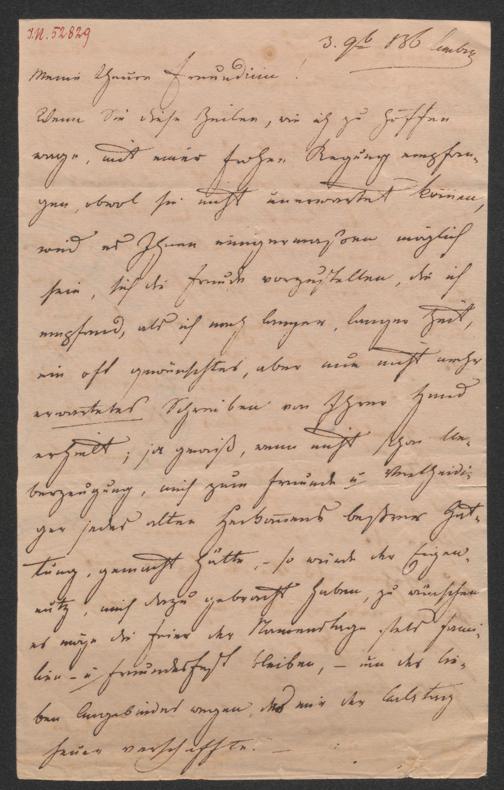 I.N. 52829
3. 9b 186 Lemberg
Meine theure Freundinn!
Wenn Sie diese Zeilen, wie ich zu hoffen
wage, mit einer frohen Regung empfan-
gen, obwol sie nicht unerwartet kommen,
wird es Ihnen einigermaßen möglich
sein, sich die Freude vorzustellen, die ich
empfand, als ich nach langer, langer Zeit,
ein oft gewünschtes, aber nun nicht mehr
erwartetes Schreiben von Ihrer Hand
erhielt; ja gewiß, wenn nicht schon Ue-
berzeugung, mich zum Freunde u Vertheidi-
ger jedes alten Herkommens beßrer Gat-
tung, gemacht hätte, – so würde der Eigen-
nutz, mich dazu gebracht haben, zu wünschen
es möge die Feier der Namenstage stets Fami-
lien- u Freundesfest bleiben, – um des lie-
ben Angebindes wegen, das mir der Carlstag
heuer verschaffte. –